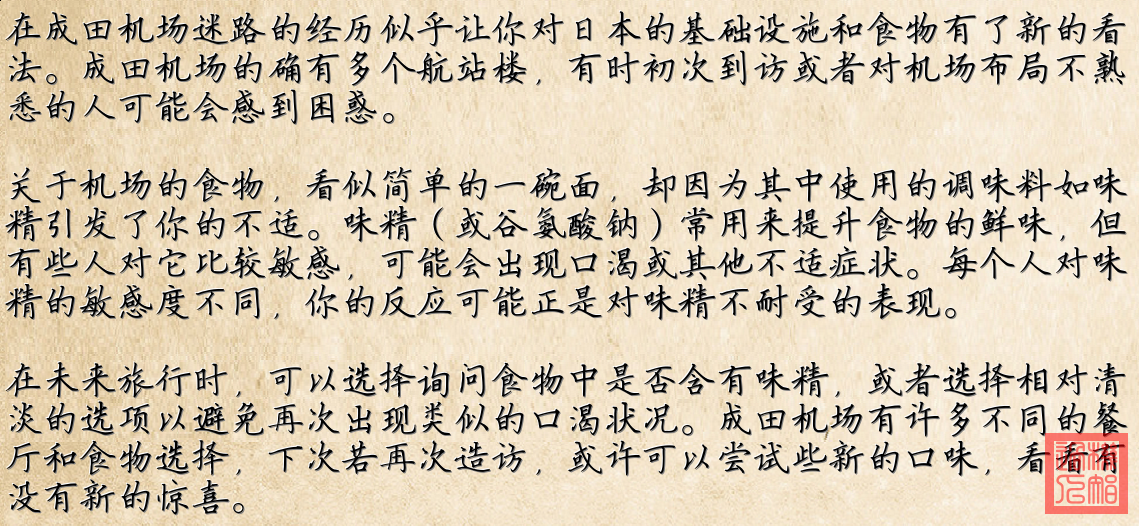 在成田机场迷路的经历似乎让你对日本的基础设施和食物有了新的看
法。成田机场的确有多个航站楼，有时初次到访或者对机场布局不熟
悉的人可能会感到困惑。
关于机场的食物，看似简单的一碗面，却因为其中使用的调味料如味
精引发了你的不适。味精（或谷氨酸钠）常用来提升食物的鲜味，但
有些人对它比较敏感，可能会出现口渴或其他不适症状。每个人对味
精的敏感度不同，你的反应可能正是对味精不耐受的表现。
在未来旅行时，可以选择询问食物中是否含有味精，或者选择相对清
淡的选项以避免再次出现类似的口渴状况。成田机场有许多不同的餐
厅和食物选择，下次若再次造访，或许可以尝试些新的口味，看看有
没有新的惊喜。